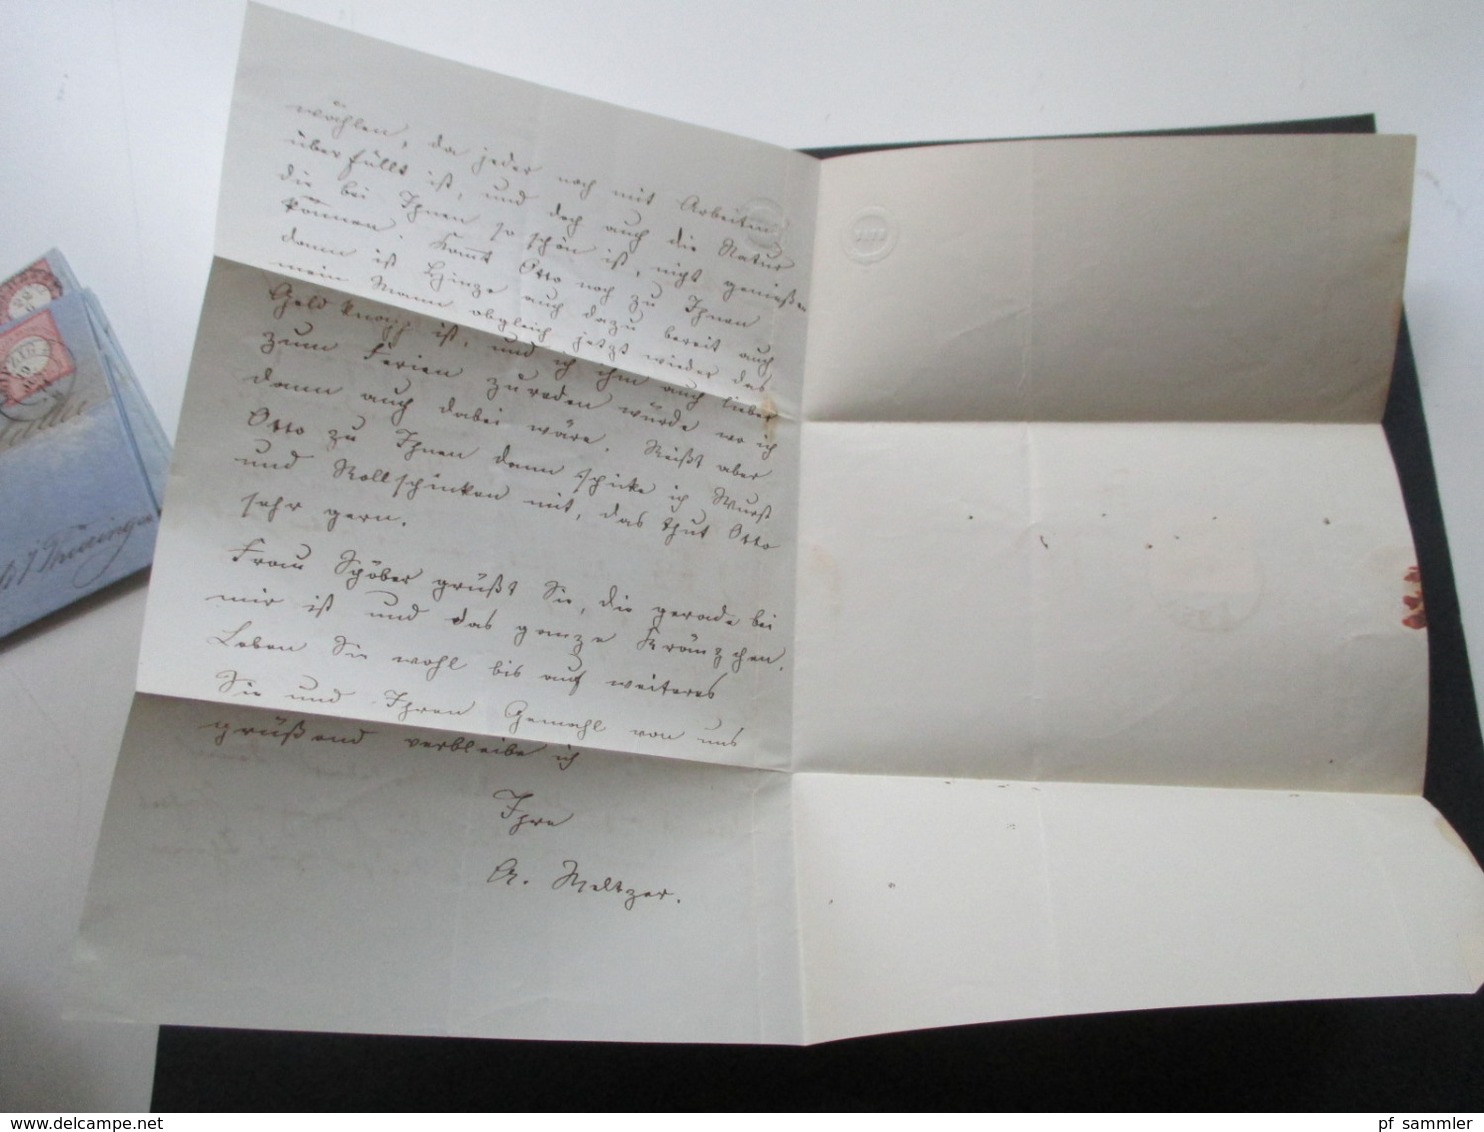 wählen, da jeder noch mit Arbeiten
überfüllt ist, und doch auch die Natur
die bei Ihnen so schön ist, nicht genießen
können. Kommt Otto noch zu Ihnen
dann ist Hinze auch dazu bereit auch
mein Mann obgleich jetzt wieder das
Geld knapp ist, und ich ihm auch lieber
zum Ferien zureden würde wo ich
dann auch dabei wäre. Reißt aber
Otto zu Ihnen dann schicke ich Wurst
und Rollschinken mit, das thut Otto
sehr gern.
Frau Schöber grüßt Sie, die gerade bei
mir ist und das ganze Kränzchen.
Leben Sie wohl bis auf weiteres
Sie und Ihren Gemahl von uns
grüßend verbleibe ich
Ihre
A. Meltzer.
Thüringen
delcampe.net
pf_sammler